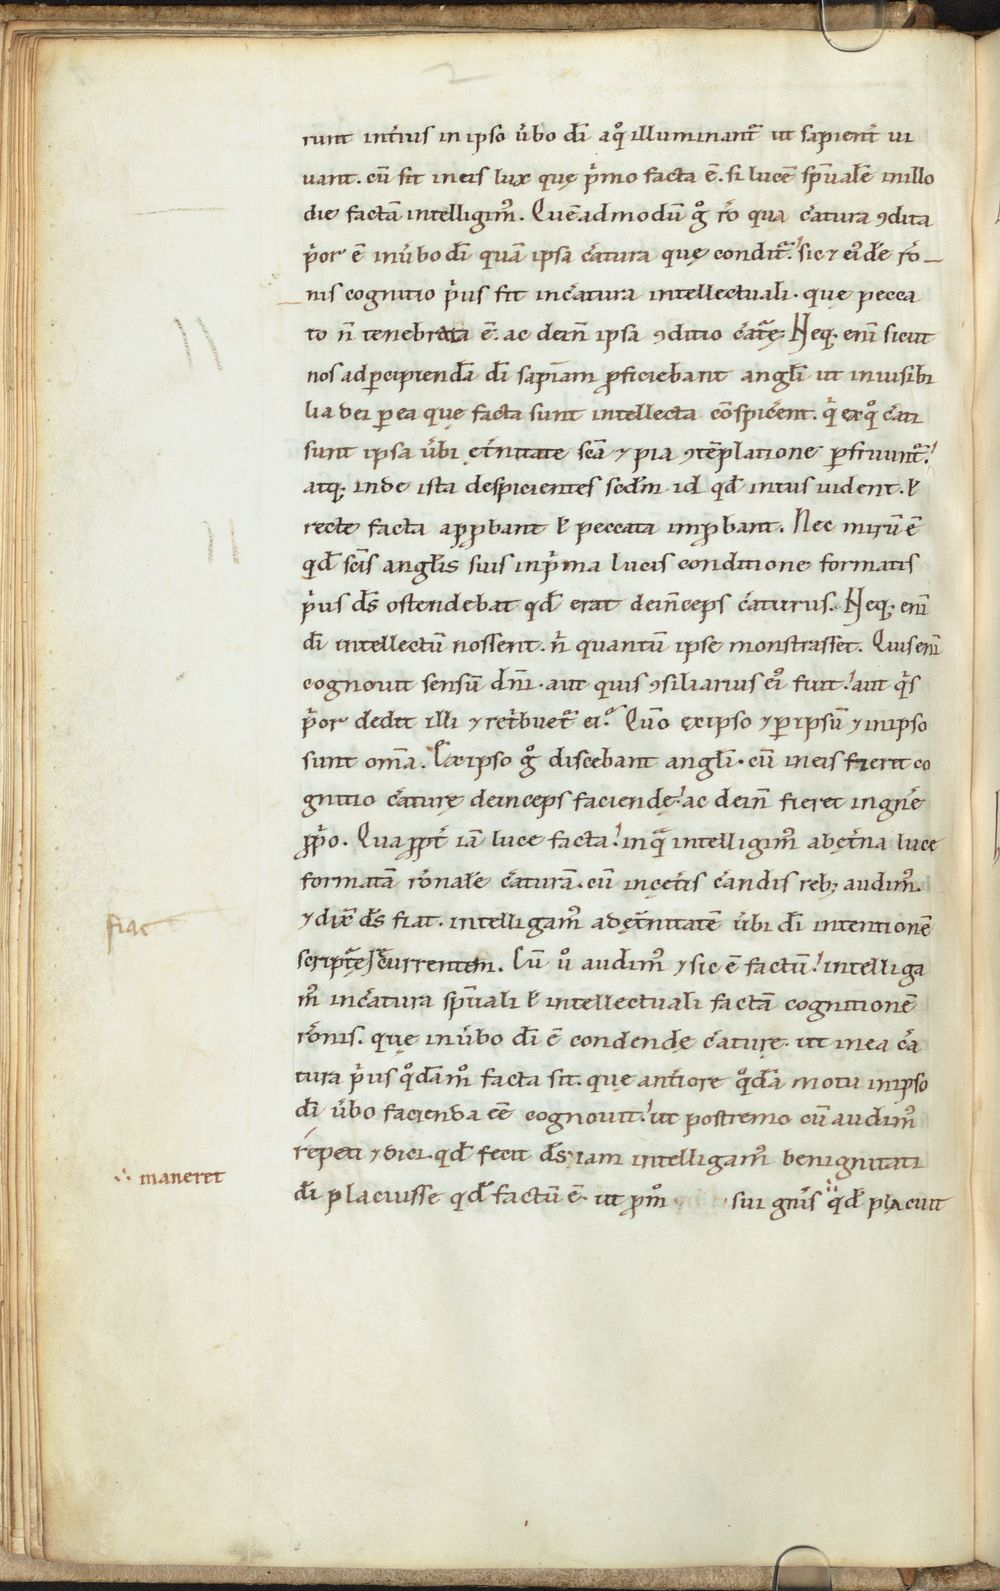 runt int̓ius in ipso u̓bo dī a qͦ illuminant᷑ ut sapient̓ ui
uant. cū sit in eis lux quę p̓mo facta ē. si lucē sp̄ualē in illo
die factā intelligim᷒. Quēadmodū gͦ ro̓ qua c̓atura ꝯdita
p̓or ē in u̓bo dī quā ipsa c̓atura quę condit᷑.' sic ⁊ ei᷒dē ro̓
nis cognitio p̓us fit in c̓atura intellectuali. quę pecca
to n̄ tenebrata ē. ac dein̄ ipsa ꝯditio c̓atᷓę. Neq; enī sicut
nos ad ꝑcipiendā dī sapīam ꝓficiebant angl̄i ut inuisibi
lia dei ꝑ ea quę facta sunt intellecta cōspic̓ent. q̓ ex qͦ c̓ati
sunt ipsa u̓bi ęt̓nitate sc̄a ⁊ pia ꝯtēplatione ꝑfruunt᷑.'
atq; inde ista despicientes scdm̄ id qd̄ intus uident. ł
recte facta apꝓbant ł peccata imꝓbant. Nec mirū ē
qd̄ sc̄is angl̄is suis in p̓ma lucis conditione formatis
p̓us ds̄ ostendebat qd̄ erat dein̄ceps c̓aturus. Neq; enī
dī intellectū nossent. n̓ quantū ipse monstrasset. Quis enī
cognouit sensū dn̄i. aut quis ꝯsiliarius ei᷒ fuit.' aut q̓s
p̓or dedit illi ⁊ ret̓buet᷑ ei. Qm̄o ex ipso ⁊ ꝑ ipsū ⁊ in ipso
sunt om̄a. Ex ipso gͦ discebant angl̄i. cū in eis fieret co
gnitio c̓aturę deinceps faciendę.' ac dein̄ fieret in gn̓e
ꝓp̓o. Quaꝓpt̓ iā luce facta.' in qᷓ intelligim᷒ ab ęt̓na luce
formatā ro̓nalē c̓aturā. cū in cęt̓is c̓andis reb; audim᷒.
⁊ dix̄ ds̄ fiat. intelligam᷒ ad ęt̓nitatē u̓bi dī intentionē
scriptᷓę recurrentem. Cū uͦ audim᷒ ⁊ sic ē factū.' intelliga
m᷒ in c̓atura sp̄uali ł intellectuali factā cognitionē
ro̓nis. quę in u̓bo dī ē condendę c̓aturę. ut in ea c̓a
tura p̓us qͦdāmͦ facta sit. quę ant̓iore qͦdā motu in ipso
dī u̓bo facienda eē cognouit.' ut postremo cū audim᷒
repeti ⁊ dici. qd̄ fecit ds̄ iam intelligam᷒ benignitati
dī placuisse qd̄ factū ē. ut ꝓ m᷒ sui gn̓is ∵ qd̄ placuit
fiat
∴ maneret